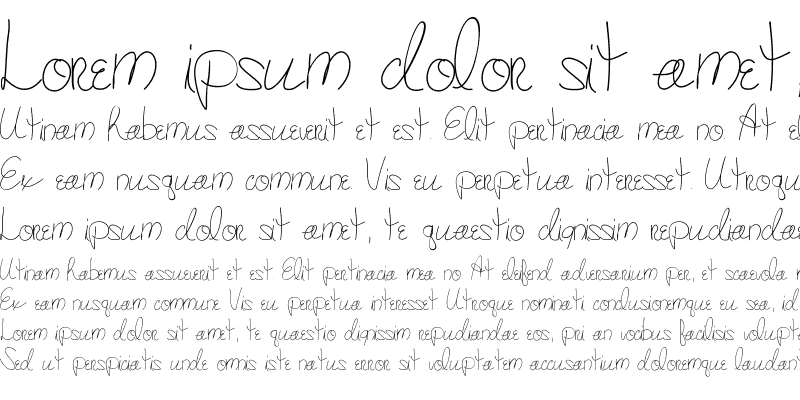 Lorem ipsum dolor sit amet,
Utinam habemus assueverit et est. Elit pertinacia mea no. At
Ex eam nusquam commune. Vis eu perpetua interesset. Utroque
Lorem ipsum dolor sit amet, te quaestio dignissim repudiandae
Utinam habemus assueverit et est. Elit pertinacia mea no. At eleifend adversarium per, et scaevola
Ex eam nusquam commune. Vis eu perpetua interesset. Utroque nominati conclusionemque eu sea, id
Lorem ipsum dolor sit amet, te quaestio dignissim repudiandae eos, pri an vocibus facilisis volupta
Sed ut perspiciatis unde omnis iste natus error sit voluptatem accusantium doloremque laudant